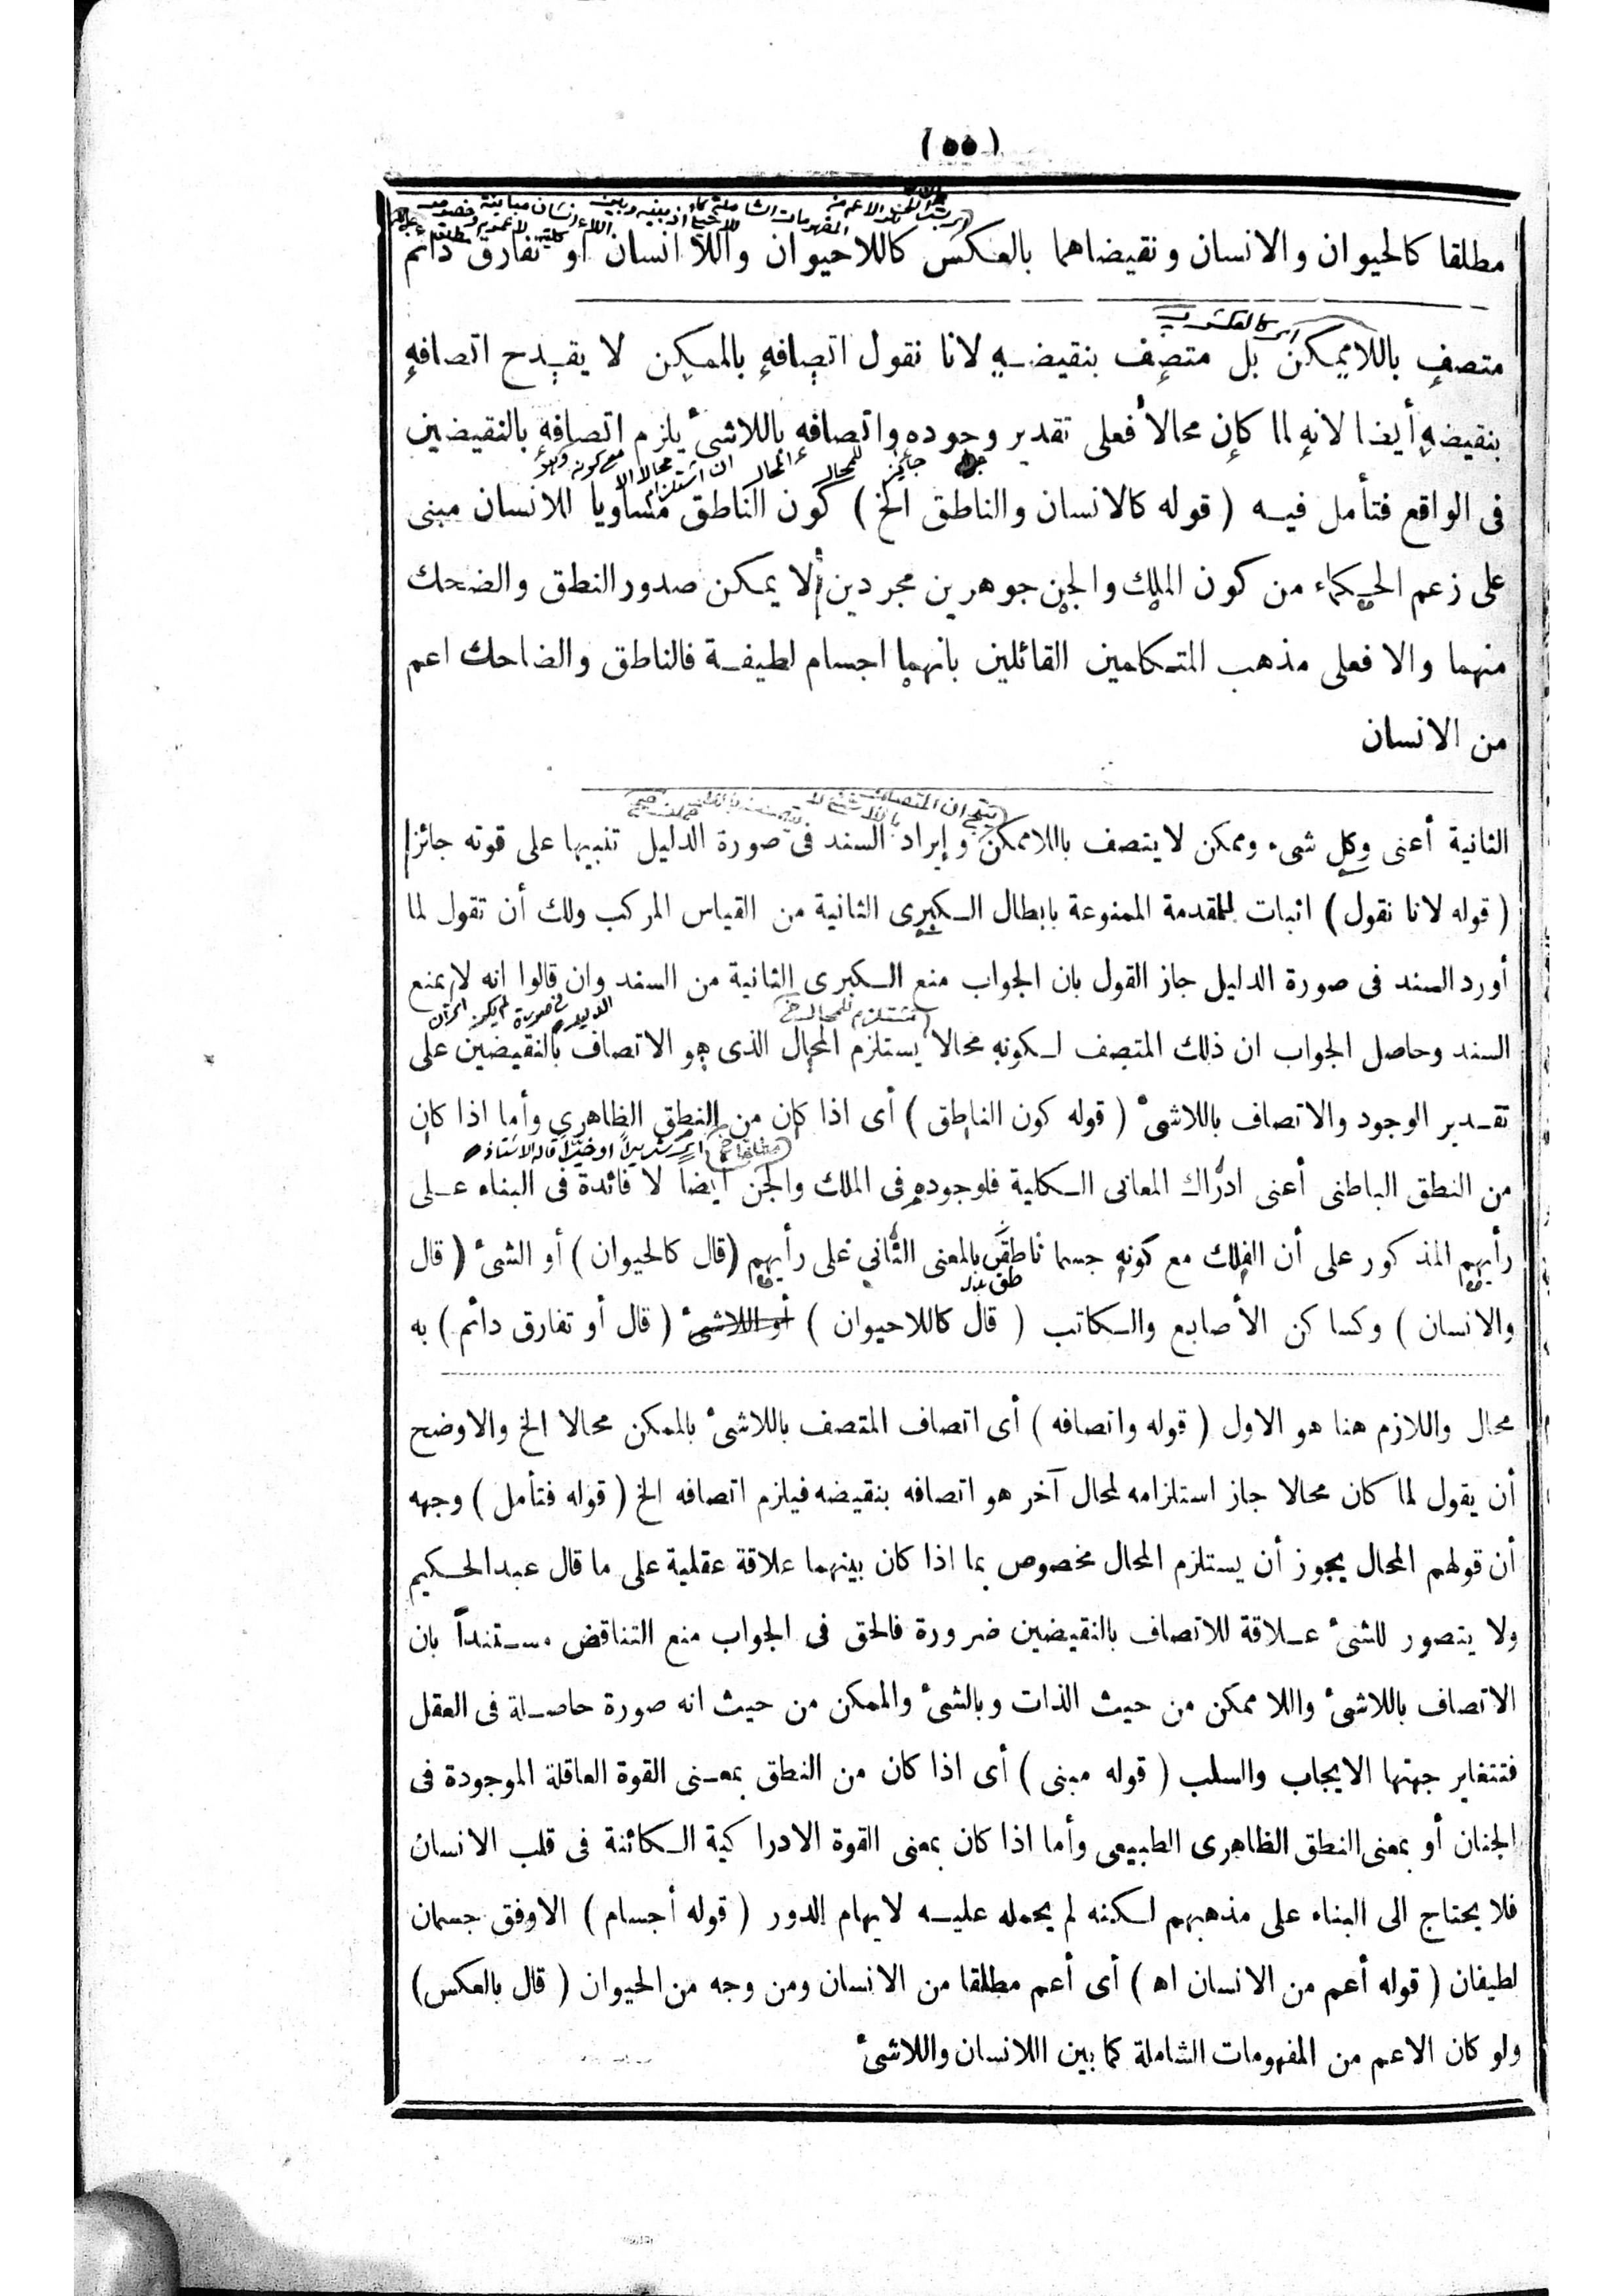 (٥٥)
مطلقا كالحيوان والانسان ونقيضاهما بالعكس كاللاحيوان واللا انسان أو تفارق دائم
اى كالعكس
متصف باللاممكن بل متصف بنقيضه لانا نقول اتصافه بالممكن لا يقدح اتصافه
بنقيضه أيضا لانه لما كان محالا فعلى تقدير وجوده واتصافه باللاشئ يلزم اتصافه بالنقيضين
جائز للمحال المحال ان استلزام محالا الا مع كونه
فى الواقع فتأمل فيه (قوله كالانسان والناطق الخ) كون الناطق مساويا للانسان مبنى
على زعم الحكماء من كون الملك والجن جوهرين مجردين ألا يمكن صدور النطق والضحك
منهما والا فعلى مذهب المتكلمين القائلين بانهما اجسام لطيفة فالناطق والضاحك اعم
من الانسان
الثانية أعنى وكل شىء وممكن لا يتصف باللاممكن وإيراد السند فى صورة الدليل تنبيها على قوته جائز
(قوله لانا نقول) اثبات للمقدمة الممنوعة بابطال الكبرى الثانية من القياس المركب ولك أن تقول لما
أورد السند فى صورة الدليل جاز القول بان الجواب منع الكبرى الثانية من السند وان قالوا انه لا يمنع
السند وحاصل الجواب ان ذلك المتصف لكونه محالا يستلزم المحال الذى هو الاتصاف بالنقيضين على
تقدير الوجود والاتصاف باللاشئ (قوله كون الناطق) أى اذا كان من النطق الظاهرى وأما اذا كان
من النطق الباطنى أعنى ادراك المعانى الكلية فلوجوده فى الملك والجن أيضا لا فائدة فى البناء على
رأيهم المذكور على أن الفلك مع كونه جسما ناطق بالمعنى الثانى على رأيهم (قال كالحيوان) أو الشئ (قال
والانسان) وكساكن الأصابع والكاتب (قال كاللاحيوان) أو اللاشئ (قال أو تفارق دائم) به
محال واللازم هنا هو الاول (قوله واتصافه) أى اتصاف المتصف باللاشئ بالممكن محالا الخ والاوضح
أن يقول لما كان محالا جاز استلزامه لمحال آخر هو اتصافه بنقيضه فيلزم اتصافه الخ (قوله فتأمل) وجهه
أن قولهم المحال يجوز أن يستلزم المحال مخصوص بما اذا كان بينهما علاقة عقلية على ما قال عبد الحكيم
ولا يتصور للشئ علاقة للاتصاف بالنقيضين ضرورة فالحق فى الجواب منع التناقض مستندا بان
الاتصاف باللاشئ واللا ممكن من حيث الذات وبالشئ والممكن من حيث انه صورة حاصلة فى العقل
فتتغاير جهتها الايجاب والسلب (قوله مبنى) أى اذا كان من النطق بمعنى القوة العاقلة الموجودة فى
الجنان أو بمعنى النطق الظاهرى الطبيعى وأما اذا كان بمعنى القوة الادراكية الكائنة فى قلب الانسان
فلا يحتاج الى البناء على مذهبهم لكنه لم يحمله عليه لايهام الدور (قوله أجسام) الاوفق جسمان
لطيفان (قوله أعم من الانسان اه) أى أعم مطلقا من الانسان ومن وجه من الحيوان (قال بالعكس)
ولو كان الاعم من المفهومات الشاملة كما بين اللانسان واللاشئ